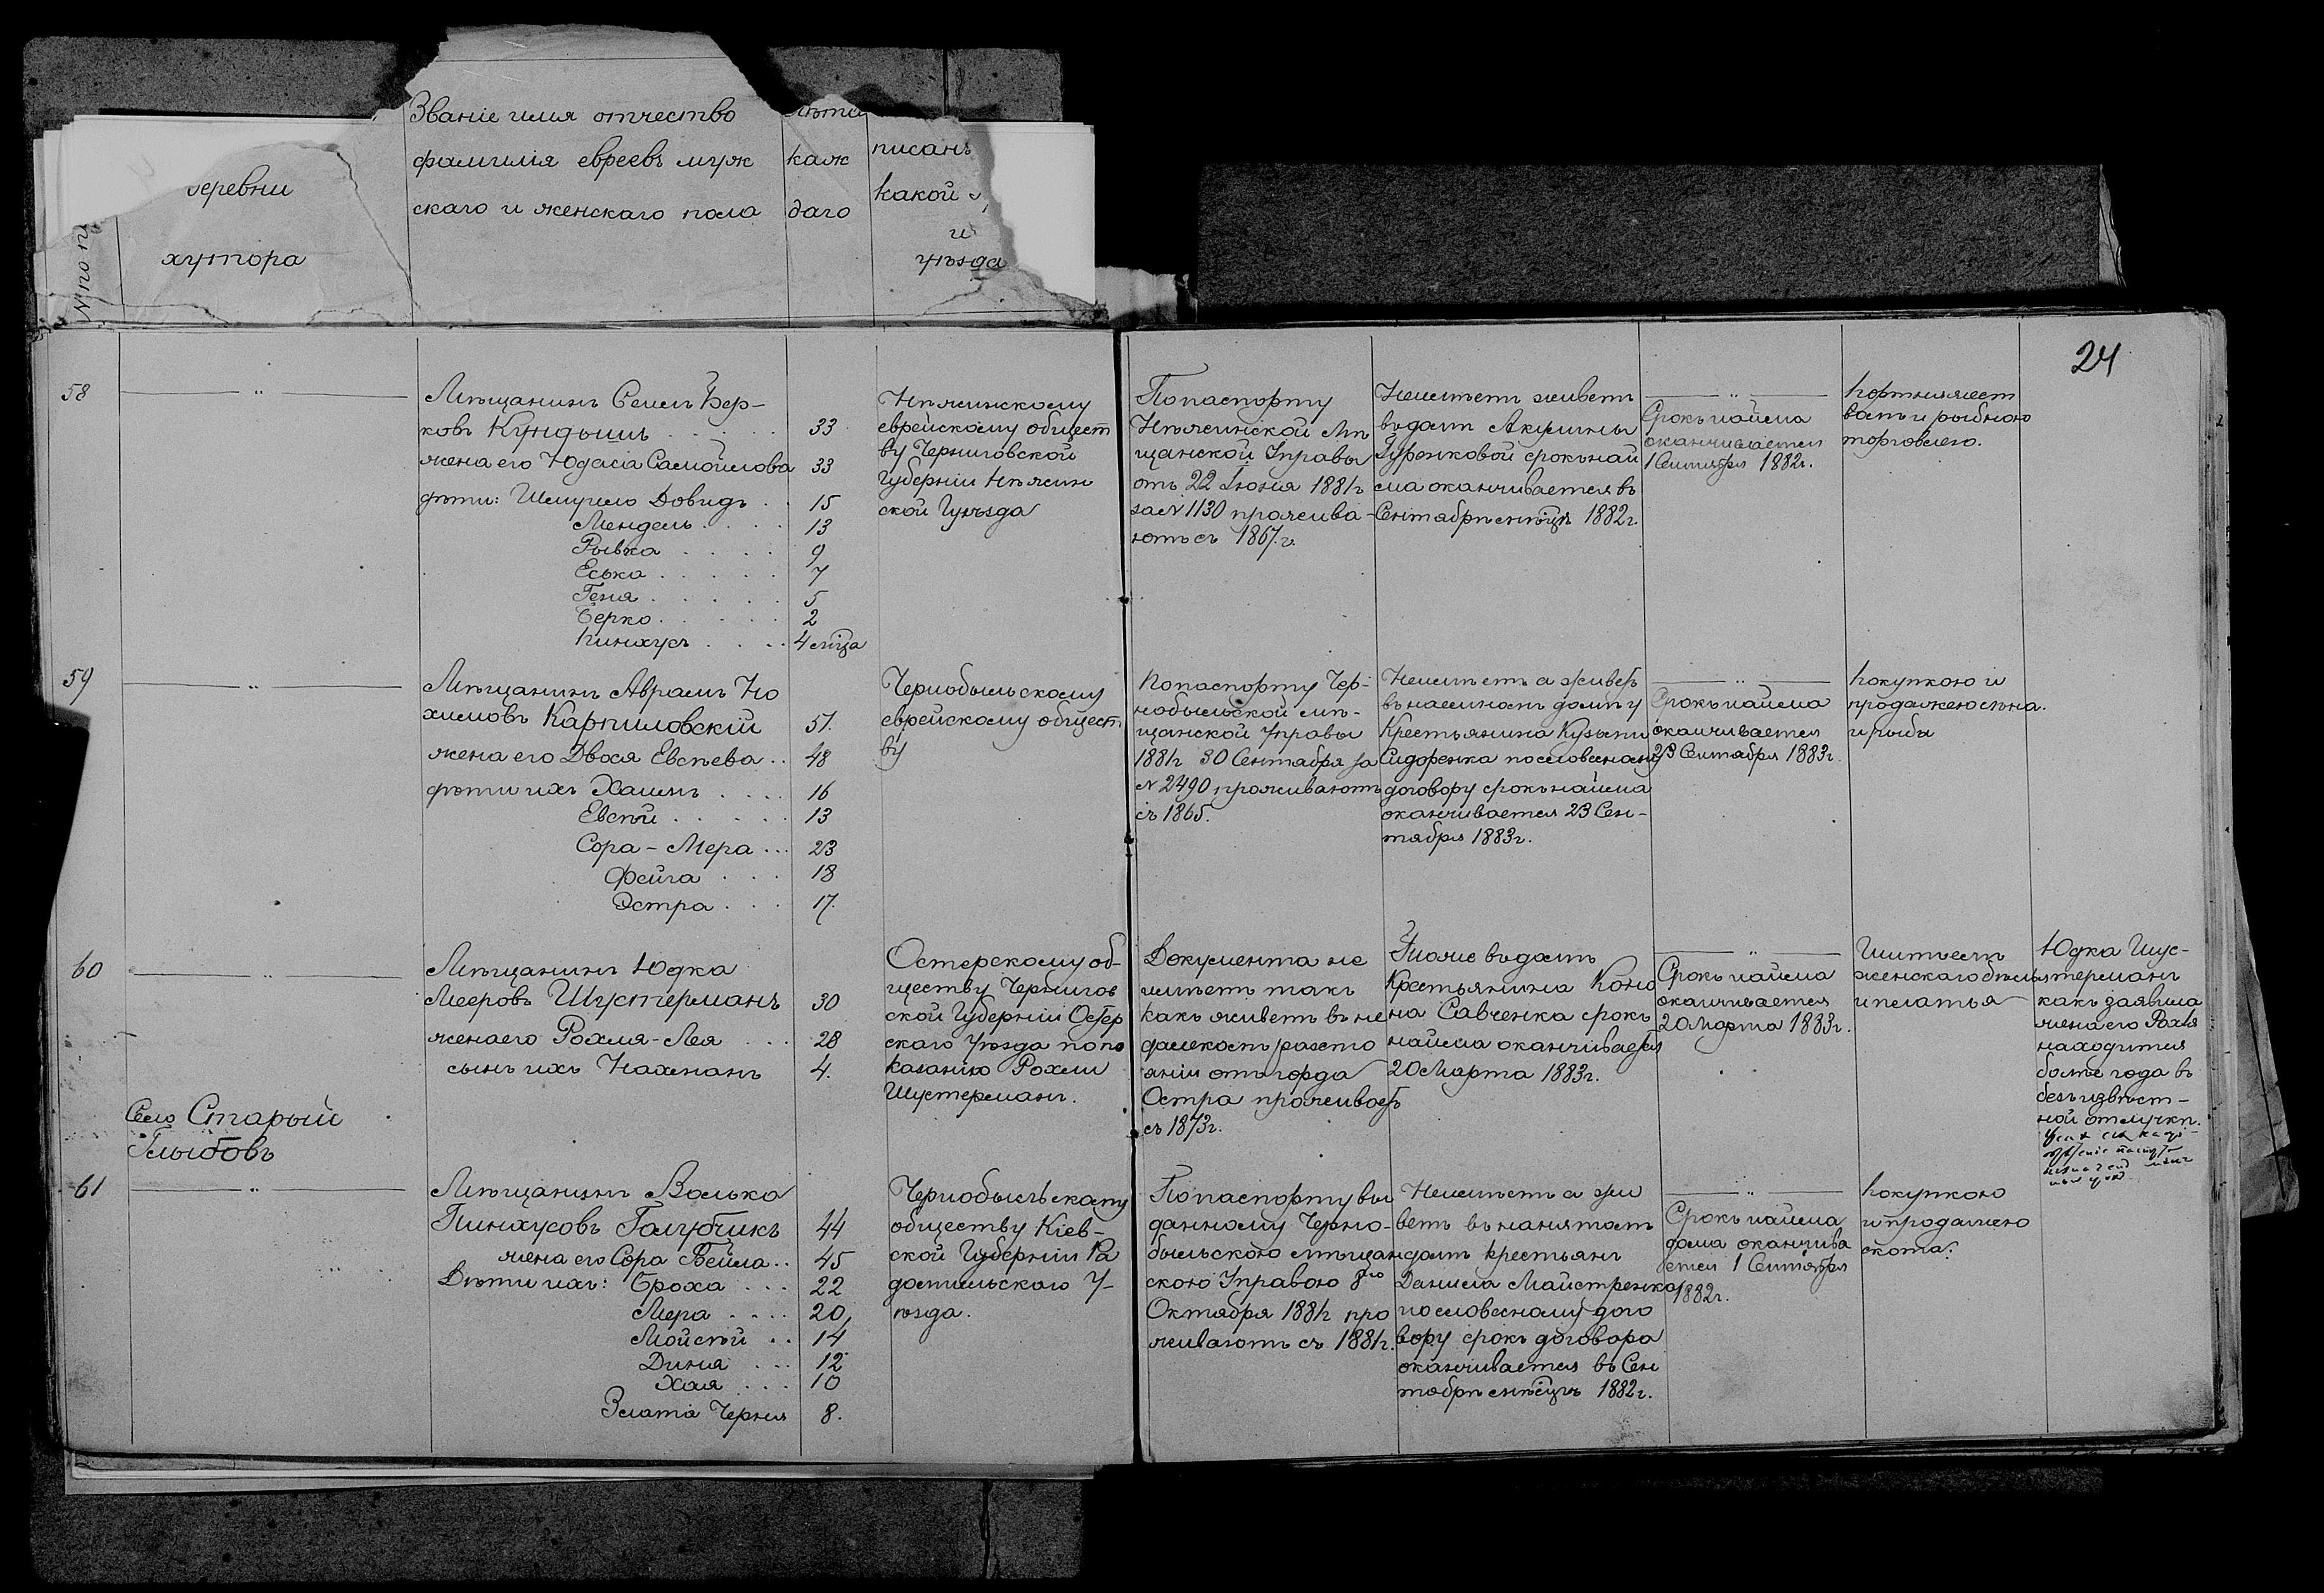 Званіе имя отчество
фамилія евреевъ муж
скаго и женскаго пола
каж
даго
писанъ
какой
и
уѣзда
деревни
хутора
24
58
Мѣщанинъ Семъ Бер-
ковъ Кундышъ 33
жена его Юдасіа Самойлова 33
дѣти: Шмуило Довидъ 15
Мендель 13
Рывка 9
Еська 7
Геня 5
Берко 2
Пинхусъ 4 мѣца
Нѣжинскому
еврейскому общест
ву Черниговской
Губерніи Нѣжин
ской Уѣзда
По паспорту
Нѣжинской мѣ
щанской Управы
отъ 22 Іюня 1881г
за N 1130 прожива-
ютъ съ 1867.г.
Неимѣетъ живетъ
въ домѣ Акулины
Гуренковой срокъ най
ма оканчивается въ
Сентябрѣ мѣсяцѣ 1882г.
Срокъ найма
оканчивается
1 Сентября 1882г.
Портняжест
вомъ и рыбною
торговлею.
59
Мѣщанинъ Аврамъ Но
химовъ Карпиловскій 51.
жена его Двося Евсѣева 48
дѣти ихъ Хаимъ 16
Евсѣй 13
Сора-Мера 23
Фейга 18
Эстра 17.
Чернобыльскому
еврейскому общест
ву
По паспорту Чер-
нобыльской мѣ-
щанской Управы
1881г 30 Сентября за
N 2490 проживаютъ
съ 1865.
Неимѣетъ а живетъ
въ наемномъ домѣ у
Крестьянина Кузьмы
Сидоренка пословесному
договору срокъ найма
оканчивается 23 Сен-
тября 1883г.
Срокъ найма
оканчивается
23 Сентября 1883г.
Покупкою и
продажею сѣна
и рыбы
60
Мѣщанинъ Юдка
Мееровъ Шустерманъ 30
жена его Рохля-Лея 28
сынъ ихъ Нахманъ 4.
Остерскому об-
ществу Чернигов
ской Губерніи Остер
скаго Уѣзда по по
казанію Рохли
Шустерманъ.
Документа не
имѣетъ такъ
какъ живетъ въ не
далекомъ разсто
яніи отъ города
Остра проживаетъ
съ 1873г.
Тоже въ домѣ
Крестьянина Коно
на Савченка срокъ
найма оканчивается
20 Марта 1883г.
Срокъ найма
оканчивается
20 Марта 1883г.
Шитьемъ
женскаго бѣлья
и платья
Юдка Шус-
терманъ
какъ заявила
жена его Рохля
находится
болѣе года въ
безъизвѣст-
ной отлучкѣ.
Село Старый
Глыбовъ
61
Мѣщанинъ Волько
Пинхусовъ Голубчикъ 44
жена его Сора Бейла 45
Дѣти ихъ: Броха 22
Мера 20
Мойсѣй 14
Дина 12
Хая 10
Злата Черня 8.
Чернобыльскому
обществу Кіев-
ской Губерніи Ра
домыльского У-
ѣзда.
По паспорту вы
данному Черно-
быльскою мѣщан
скою Управою 8го
Октября 1881г про
живаютъ съ 1881г.
Неимѣетъ а жи
ветъ въ нанятомъ
домѣ крестьян
Данила Майстренка
по словесному дого
вору срокъ договора
оканчивается въ Сен
тябрѣ мѣсяцѣ 1882г.
Срокъ найма
дома оканчива
ется 1 Сентября
1882г.
Покупкою
и продажею
скота.